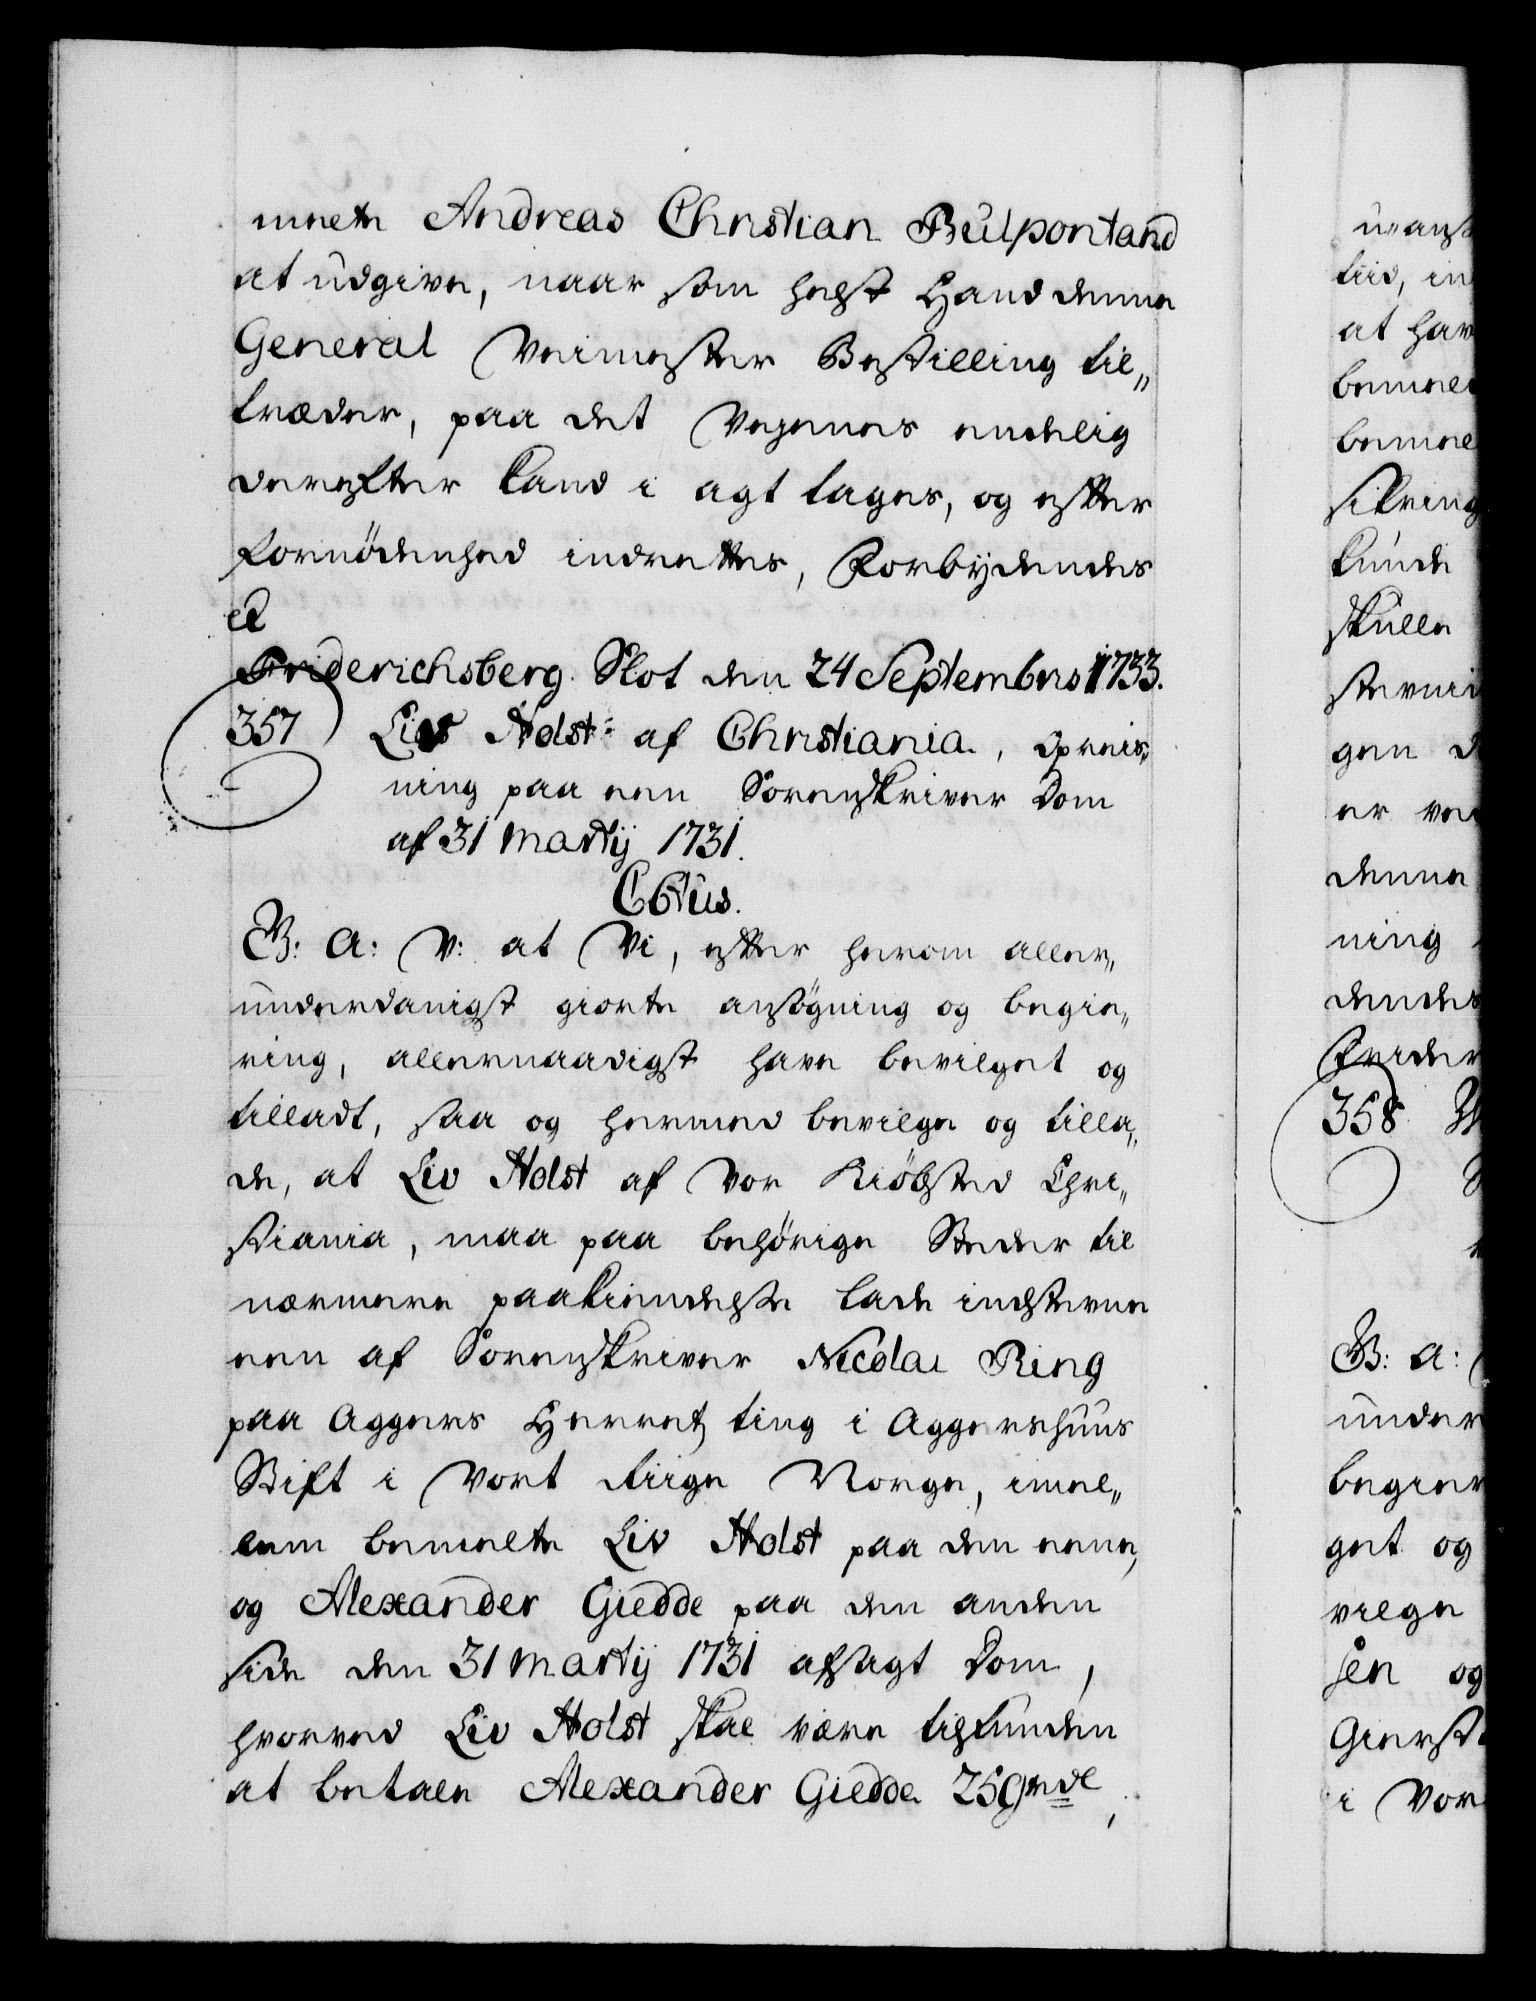 mete Andreas Christian Bulpontand
at udgive, naar som helst Hand denne
General Veimester Bestilling til„
træder, paa det Vegenes endelig
derefter kand i agt tages, og efter
fornödenhed indrettes, Forbydendes
et
Friderichsberg Slot den 24 Septembris 1733.
357 Liv Holst af Christiania, opreis„
ning paa een Sorenskriver Dom
af 31 Martij 1731.
C6tus.
G: A: V: at Vi, efter herom aller„
underdanigst giorte ansögning og begie„
ring, allernaadigst have bevilget og
tilladt, saa og hermed bevilge og tilla„
de, at Liv Holst af Vor Kiöbsted Chri„
stiania, maa paa behörige Steder til
nærmere paakiendelse lade indstevne
een af Sorenskriver Nicolai Ring
paa Aggers Herretz ting i Aggershuus
Stift i Vort Riige Norge, imel„
lem bemelte Liv Holst paa den eene,
og Alexander Giedde paa den anden
side den 31 Martij 1731 afsagt Dom,
hvorved Liv Holst skal være tilfunden
at betale Alexander Giedde 250 rdl,
tiid, in
at hav
bemel
bemel
sikring
kunde
skulle
gen
er
denne
ning
dendes
Frider
358
G: A:
under
begier
get og
vilge
sen og
Gierst
i Vor